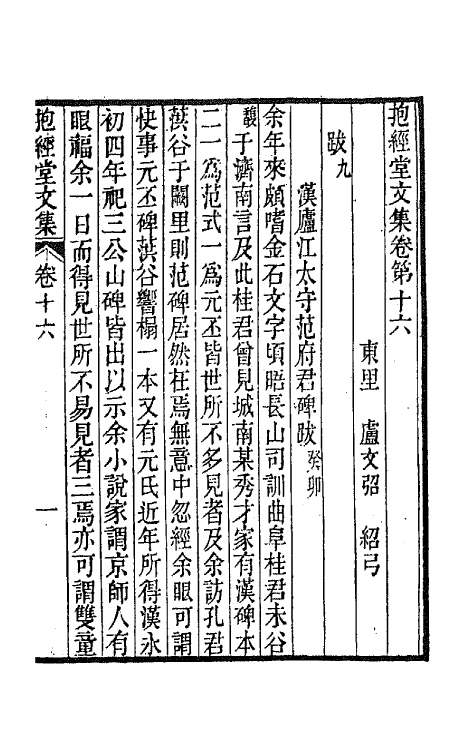 抱經堂文集卷第十六
東里　盧文弨　紹弓
跋九
漢廬江太守范府君碑跋癸卯
余年來頗嗜金石文字頃晤長山司訓曲阜桂君未谷
馥于濟南言及此桂君曾見城南某秀才家有漢碑本
二一爲范式一爲元丕皆世所不多見者及余訪孔君
葓谷于闕里則范碑居然在焉無意中忽經余眼可謂
快事元丕碑葓谷響榻一本又有元氏近年所得漢永
初四年祀三公山碑皆出以示余小說家謂京師人有
眼福余一日而得見世所不易見者三焉亦可謂雙童
抱經堂文集　卷十六　一